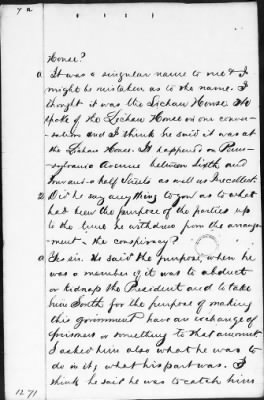 72
House?
a It was a singular name to me & I
might be mistaken as to the name. I
thought it was the Lichau House. We
spoke of the Lichau House in our conver-
sation and I think he said it was at
the Lichau House. It happened on Penn-
sylvania Avenue between Sixth and
four and-a half Streets as well as I recollect.
Q Did he say anything to you as to what
had been the purpose of the parties up
to the time he withdrew from the arrange-
ment - the conspiracy?
a Yes sir. He said the purpose, when he
was a member of it was to abduct
or kidnap the President and to take
him South for the purpose of making
this government have an exchange of
prisoners or something to that amount.
I asked him also what he was to
do in it, what his part was. I
think he said he was to catch him
1271